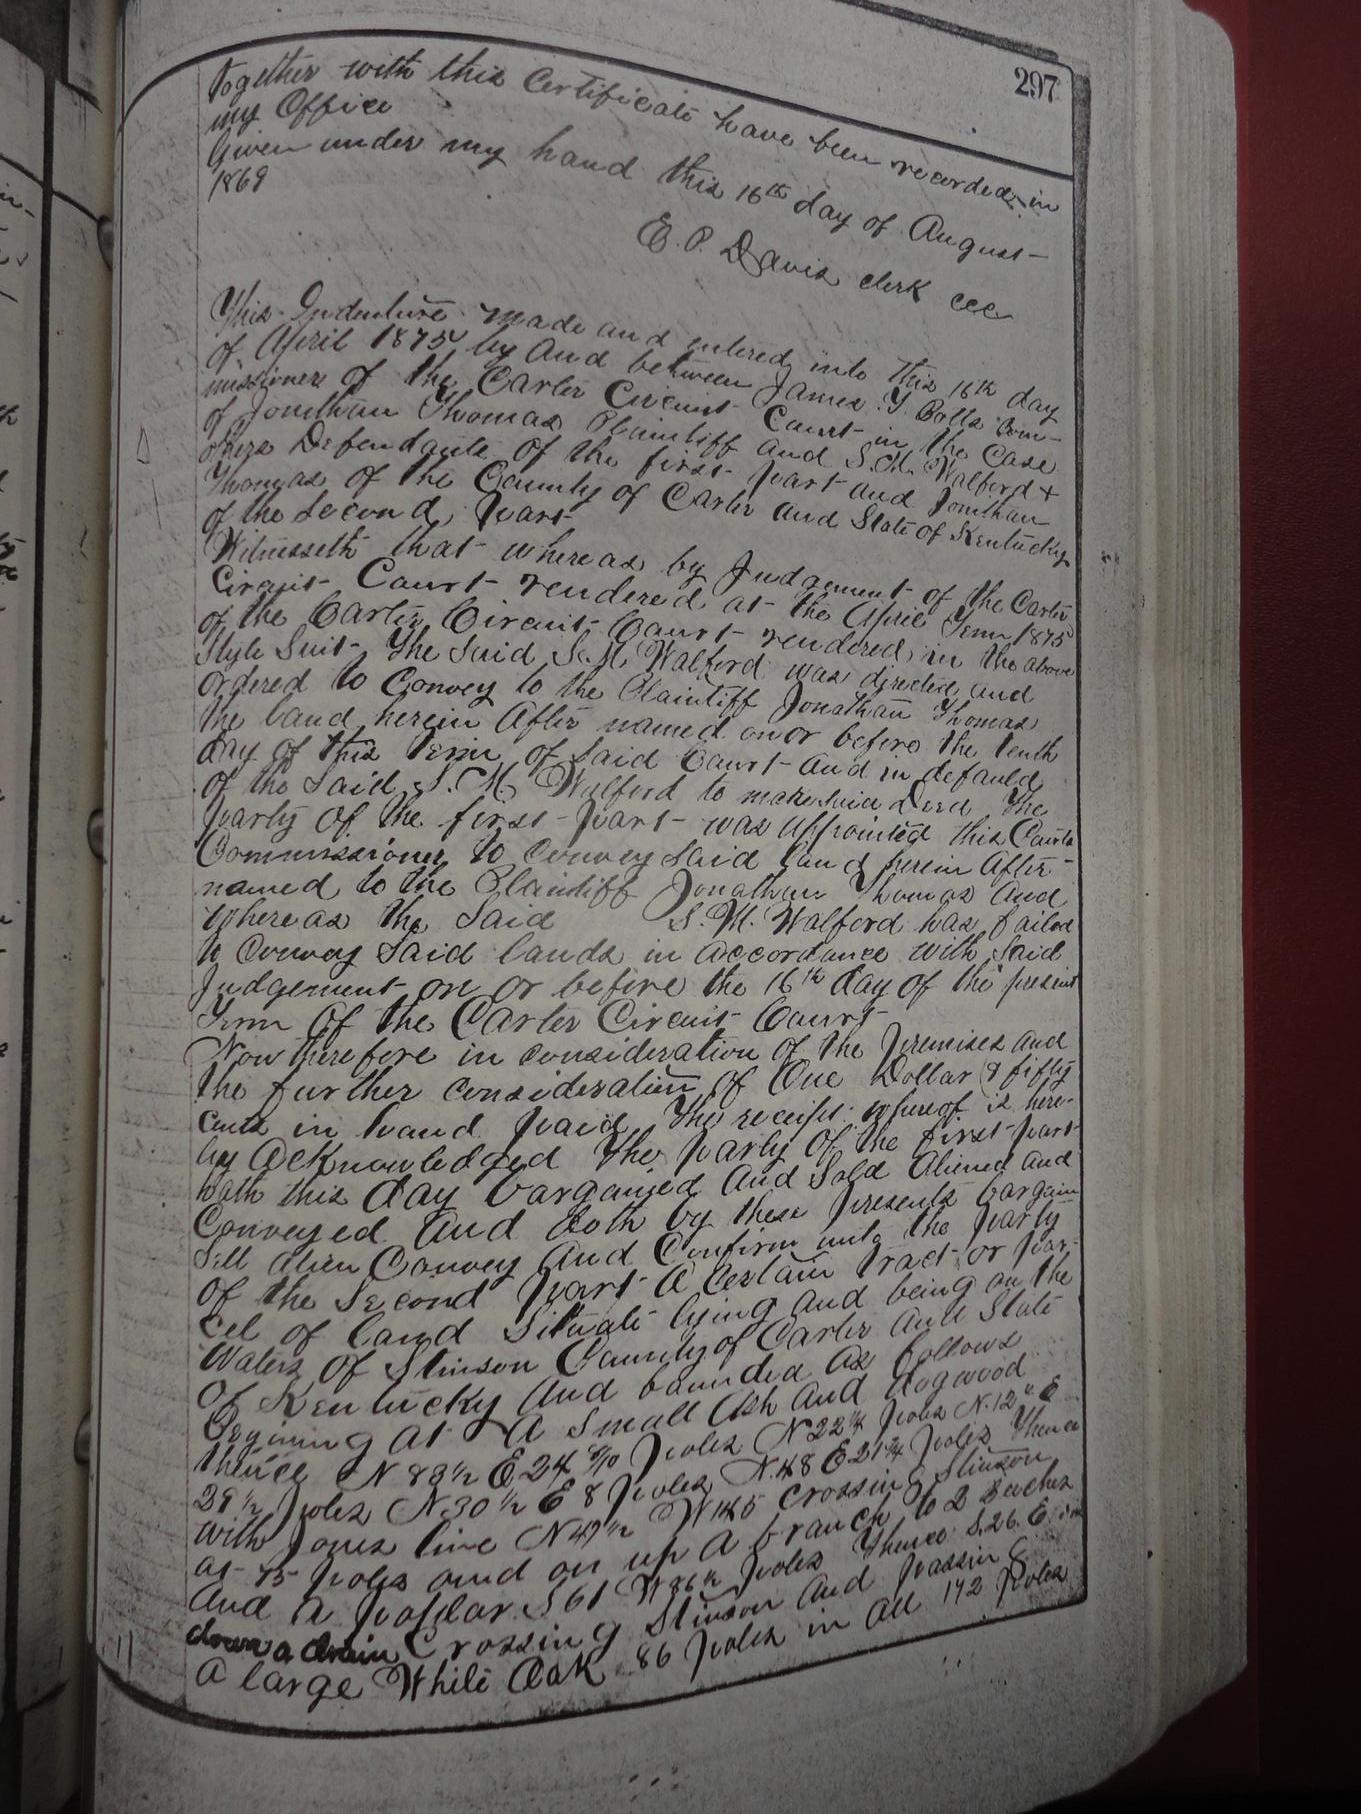 297
together with this Certificate have been recorded in
my Office
Given under my hand this 16th day of August
1869
E. P. Davis clerk ccc
This Indenture made and entered into this 16th day
of April 1875 by And between James Y. Botts Com-
missioner of the Carter Circuit Court in the Case
of Jonathan Thomas Plaintiff And S. M. Walford &
others Defendants of the first part and Jonathan
Thomas of the County of Carter and State of Kentucky
of the Second part
Witnesseth that whereas by Judgement of the Carter
Circuit Court rendered at the April Term 1875
of the Carter Circuit Court rendered in the above
Style Suit The Said S. M. Walford was directed and
ordered to Convey to the Plaintiff Jonathan Thomas
the land herein After named on or before the tenth
day of this Term of Said Court And in defauld
of the Said S. M. Walford to make Said Deed The
party of the first part was Appointed this Courts
Commissioner to Convey Said land herein After
named to the Plaintiff Jonathan Thomas And
Whereas the Said S. M. Walford has failed
to Convey Said lands in Accordance with Said
Judgement on or before the 16th day of the present
Term Of the Carter Circuit Court
Now therefore in consideration of the Premises and
the further consideration of One Dollar & fifty
cents in hand paid The receipt whereof is here-
by Acknowledged The party Of the first part
hath this day bargained And Sold Aliened And
Conveyed And doth by these presents bargain
Sell Alien Convey And Confirm unto the party
Of the Second part A Certain tract or par-
cel of land Situate lying And being on the
Waters Of Stinson County of Carter And State
Of Kentucky And bounded As follows
Begining At A Small Ash And dogwood
thence N 83½ E 24 poles N 22¼ poles N. 12 E
29½ poles N 30½ E 8 poles N. 48 E 21¾ poles Thence
with Jones line N 49½ W 145 crossing Stinson
at 75 poles and on up A branch to 2 Beeches
And A poplar S 61 W 36½ poles Thence S. 26. E
down a drain Crossing Stinson And passing
A large White Oak 86 poles in All 142 poles